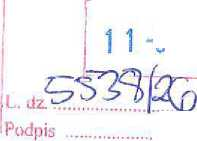 11-
L. dz. 5538/26
Podpis